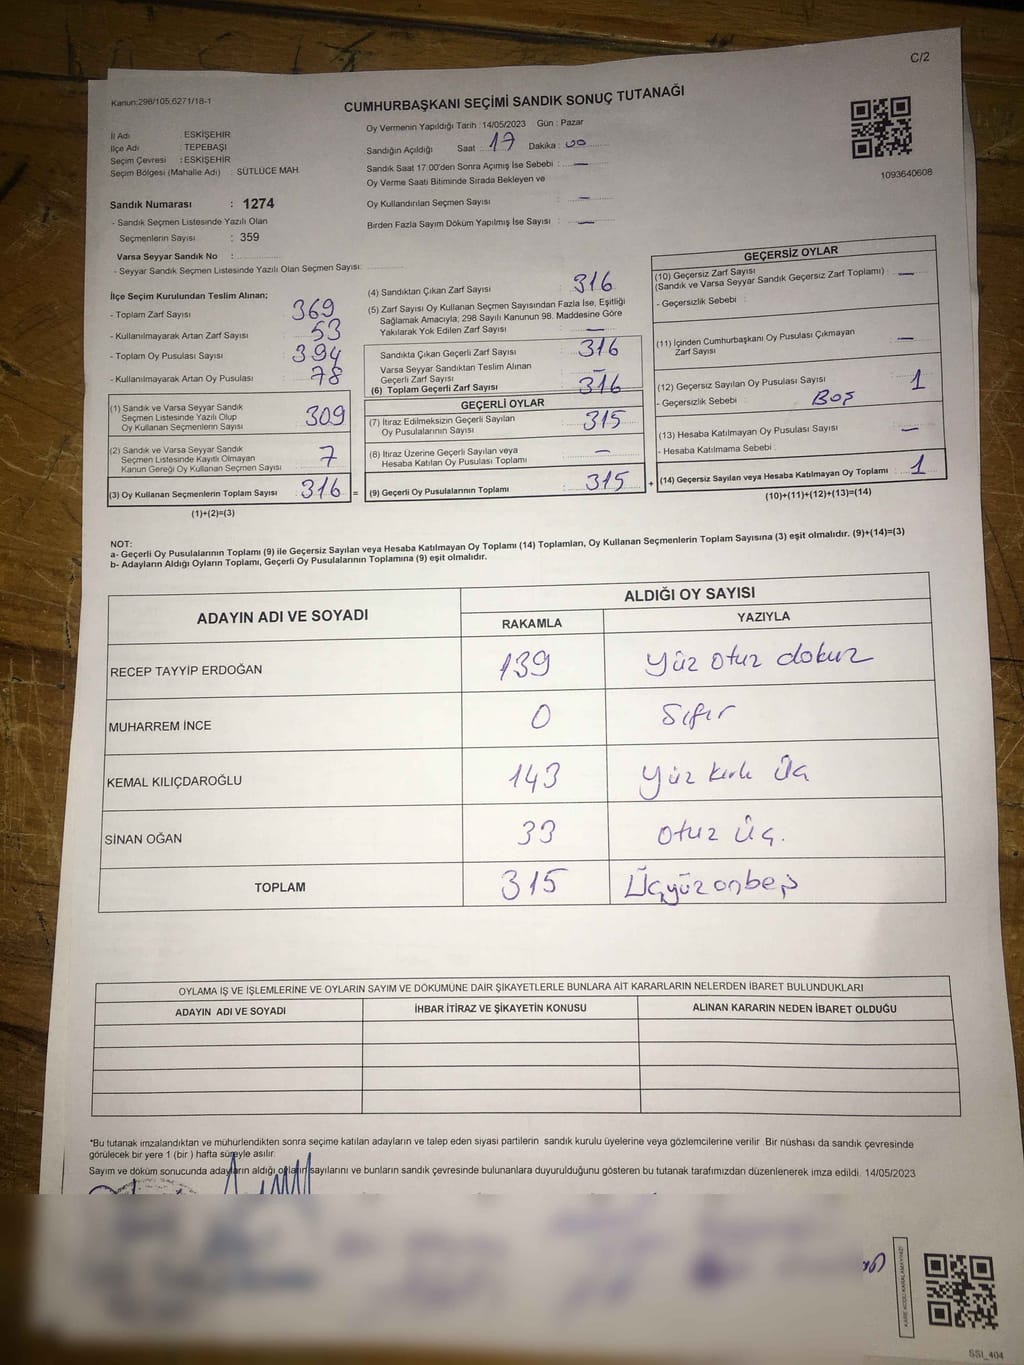 C/2
Kanun:298/105;6271/18-1
CUMHURBAŞKANI SEÇİMİ SANDIK SONUÇ TUTANAĞI
İl Adı : ESKİŞEHİR
İlçe Adı : TEPEBAŞI
Seçim Çevresi : ESKİŞEHİR
Seçim Bölgesi (Mahalle Adı) : SÜTLÜCE MAH.
Oy Vermenin Yapıldığı Tarih : 14/05/2023 Gün : Pazar
Sandığın Açıldığı Saat : 17 Dakika : 00
Sandık Saat 17:00'den Sonra Açımış İse Sebebi : —
Oy Verme Saati Bitiminde Sırada Bekleyen ve
Oy Kullandırılan Seçmen Sayısı : —
Birden Fazla Sayım Döküm Yapılmış İse Sayısı : —
1093640608
Sandık Numarası : 1274
- Sandık Seçmen Listesinde Yazılı Olan
Seçmenlerin Sayısı : 359
Varsa Seyyar Sandık No :
- Seyyar Sandık Seçmen Listesinde Yazılı Olan Seçmen Sayısı:
İlçe Seçim Kurulundan Teslim Alınan;
- Toplam Zarf Sayısı : 369
- Kullanılmayarak Artan Zarf Sayısı : 53
- Toplam Oy Pusulası Sayısı : 394
- Kullanılmayarak Artan Oy Pusulası : 78
(1) Sandık ve Varsa Seyyar Sandık
Seçmen Listesinde Yazılı Olup
Oy Kullanan Seçmenlerin Sayısı : 309
(2) Sandık ve Varsa Seyyar Sandık
Seçmen Listesinde Kayıtlı Olmayan
Kanun Gereği Oy Kullanan Seçmen Sayısı : 7
(3) Oy Kullanan Seçmenlerin Toplam Sayısı : 316 =
(1)+(2)=(3)
(4) Sandıktan Çıkan Zarf Sayısı : 316
(5) Zarf Sayısı Oy Kullanan Seçmen Sayısından Fazla İse, Eşitliği
Sağlamak Amacıyla; 298 Sayılı Kanunun 98. Maddesine Göre
Yakılarak Yok Edilen Zarf Sayısı : —
Sandıkta Çıkan Geçerli Zarf Sayısı : 316
Varsa Seyyar Sandıktan Teslim Alınan
Geçerli Zarf Sayısı : —
(6) Toplam Geçerli Zarf Sayısı : 316
GEÇERLİ OYLAR
(7) İtiraz Edilmeksizin Geçerli Sayılan
Oy Pusulalarının Sayısı : 315
(8) İtiraz Üzerine Geçerli Sayılan veya
Hesaba Katılan Oy Pusulası Toplamı : —
(9) Geçerli Oy Pusulalarının Toplamı : 315 +
GEÇERSİZ OYLAR
(10) Geçersiz Zarf Sayısı
(Sandık ve Varsa Seyyar Sandık Geçersiz Zarf Toplamı) : —
- Geçersizlik Sebebi :
(11) İçinden Cumhurbaşkanı Oy Pusulası Çıkmayan
Zarf Sayısı : —
(12) Geçersiz Sayılan Oy Pusulası Sayısı : 1
- Geçersizlik Sebebi : BOŞ
(13) Hesaba Katılmayan Oy Pusulası Sayısı : —
- Hesaba Katılmama Sebebi :
(14) Geçersiz Sayılan veya Hesaba Katılmayan Oy Toplamı : 1
(10)+(11)+(12)+(13)=(14)
NOT:
a- Geçerli Oy Pusulalarının Toplamı (9) ile Geçersiz Sayılan veya Hesaba Katılmayan Oy Toplamı (14) Toplamları, Oy Kullanan Seçmenlerin Toplam Sayısına (3) eşit olmalıdır. (9)+(14)=(3)
b- Adayların Aldığı Oyların Toplamı, Geçerli Oy Pusulalarının Toplamına (9) eşit olmalıdır.
ADAYIN ADI VE SOYADI ALDIĞI OY SAYISI
RAKAMLA YAZIYLA
RECEP TAYYİP ERDOĞAN 139 Yüz otuz dokuz
MUHARREM İNCE 0 Sıfır
KEMAL KILIÇDAROĞLU 143 Yüz kırk üç
SİNAN OĞAN 33 otuz üç.
TOPLAM 315 Üçyüzonbeş
OYLAMA İŞ VE İŞLEMLERİNE VE OYLARIN SAYIM VE DÖKÜMÜNE DAİR ŞİKAYETLERLE BUNLARA AİT KARARLARIN NELERDEN İBARET BULUNDUKLARI
ADAYIN ADI VE SOYADI İHBAR İTİRAZ VE ŞİKAYETİN KONUSU ALINAN KARARIN NEDEN İBARET OLDUĞU
*Bu tutanak imzalandıktan ve mühürlendikten sonra seçime katılan adayların ve talep eden siyasi partilerin sandık kurulu üyelerine veya gözlemcilerine verilir. Bir nüshası da sandık çevresinde
görülecek bir yere 1 (bir ) hafta süreyle asılır.
Sayım ve döküm sonucunda adayların aldığı oyların sayılarını ve bunların sandık çevresinde bulunanlara duyurulduğunu gösteren bu tutanak tarafımızdan düzenlenerek imza edildi. 14/05/2023
KARE KODU KARALAMAYINIZ!
SSI_404